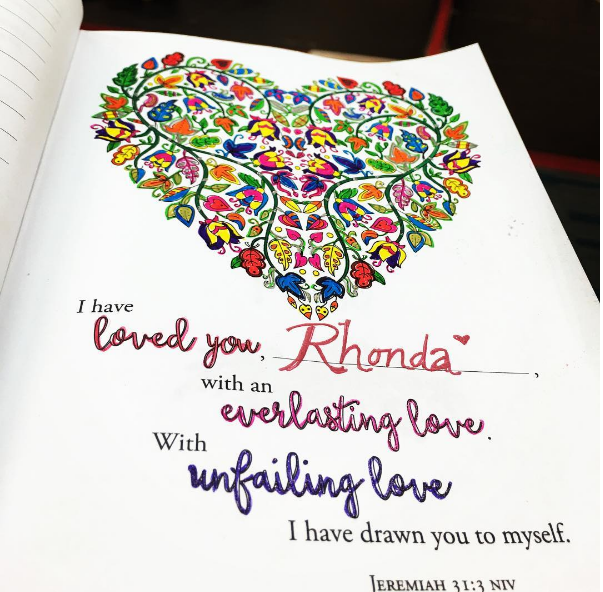 I have
loved you, Rhonda,
with an
everlasting love.
With
unfailing love
I have drawn you to myself.
JEREMIAH 31:3 NIV